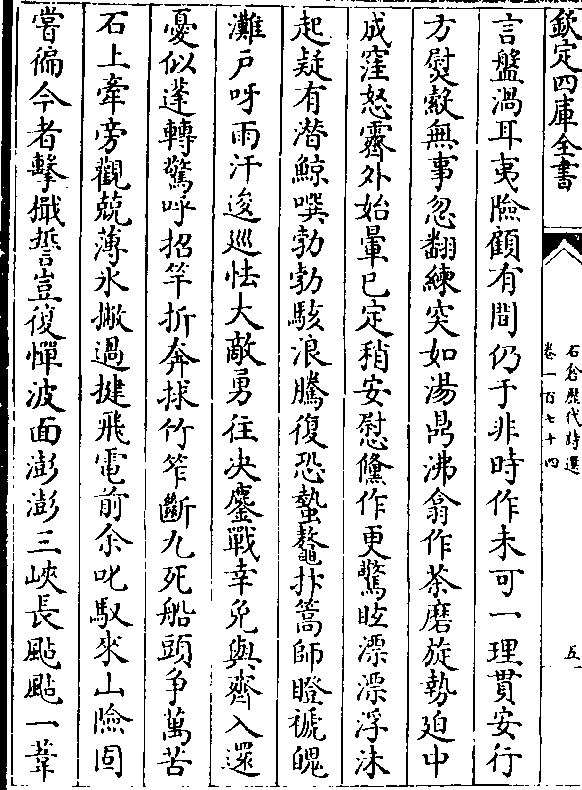 欽定四庫全書
石倉歷代詩選
卷一百七十四
五
言盤渦耳夷險顧有間仍于非時作未可一理貫安行
方熨縠無事忽翻練突如湯鼎沸翕作茶磨旋勢迫中
成窪怒霽外始暈已定稍安慰儻作更驚眩漂漂浮沫
起疑有潛鯨噀勃勃駭浪騰復恐蟄鼇抃篙師瞪褫魄
灘戶呀雨汗逡巡怯大敵勇往決鏖戰幸免與齊入還
憂似蓬轉驚呼招竿折奔捄竹笮斷九死船頭爭萬苦
石上牽旁觀兢薄氷撇過揵飛電前余叱馭來山險固
嘗徧今者擊檝誓豈復憚波面澎澎三峽長颭颭一葦